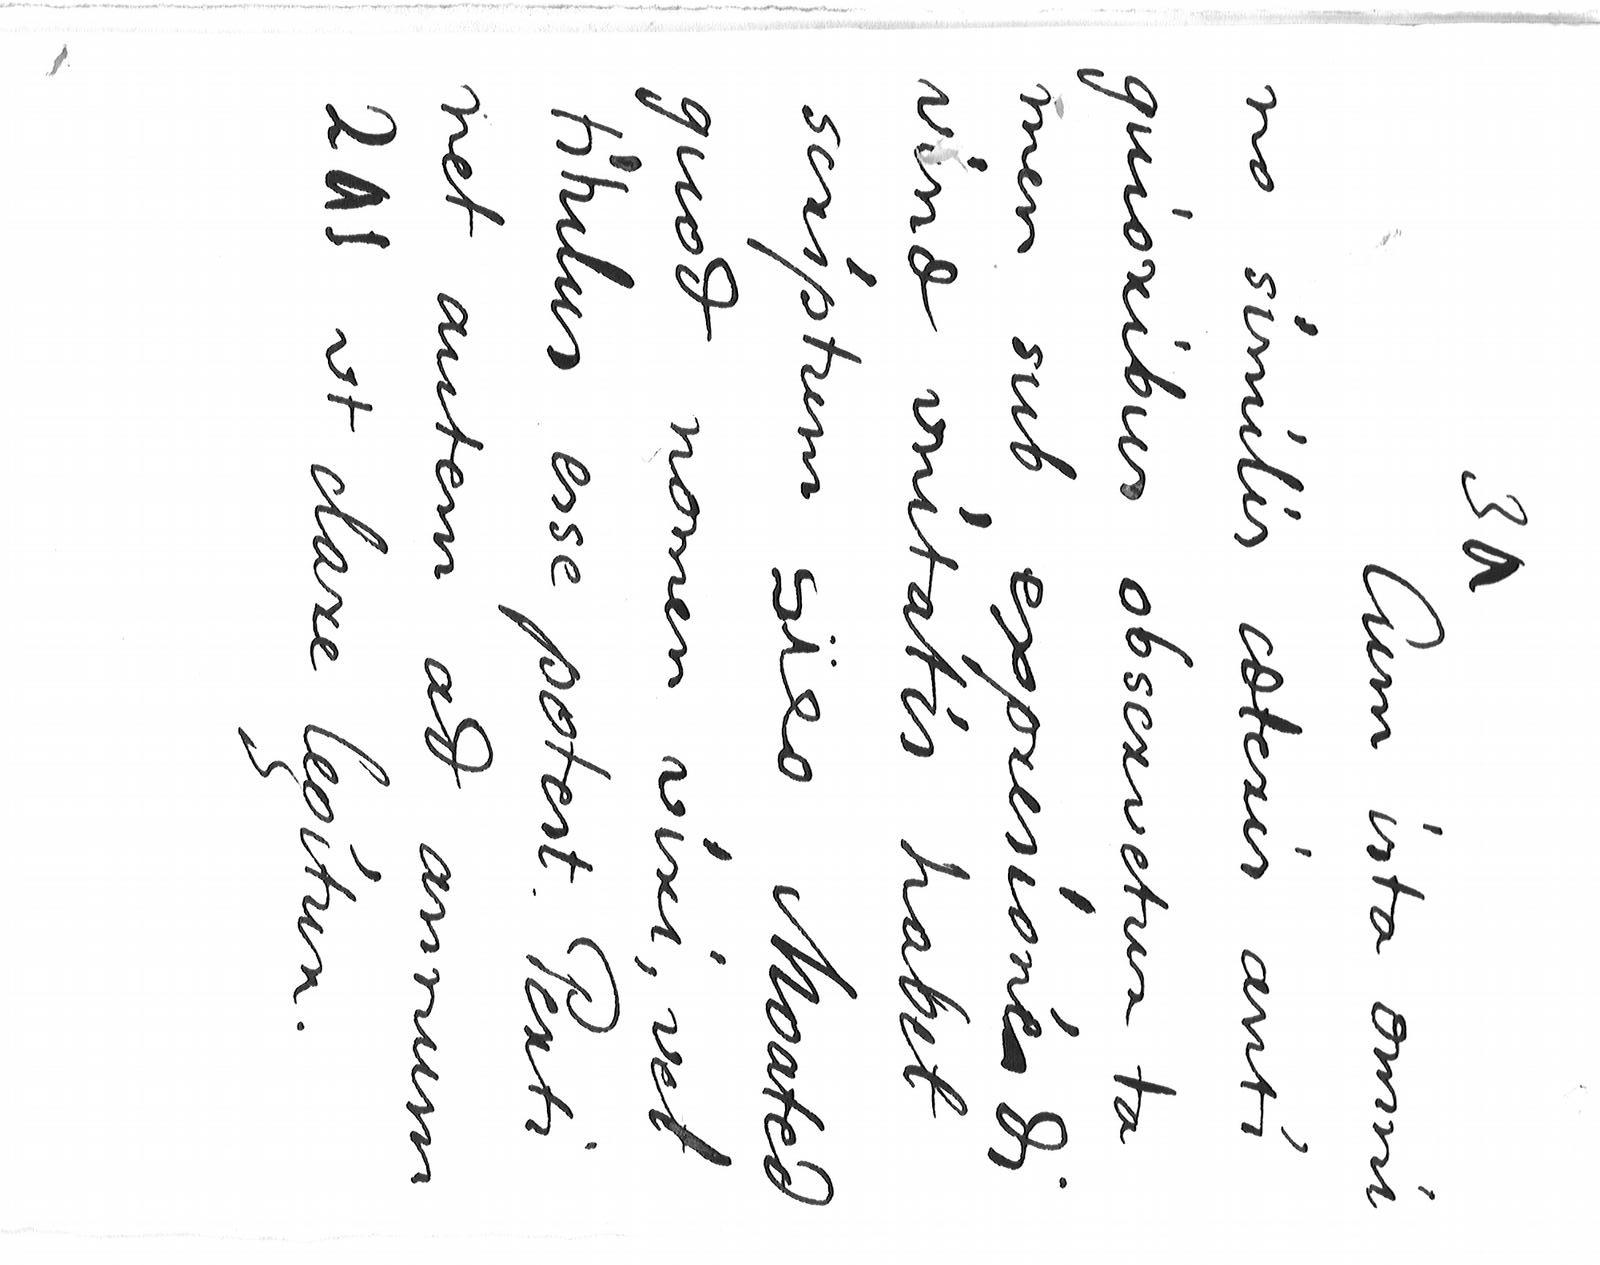 3A
Cum ista omni
no similis cæteris anti
quioribus observetur ta
men sub expresionis di
vinæ vnitatis habet
scriptum sieo Moated
quod nomen viri, vel
titulus esse potest. Perti
net autem ad annum
2A1 vt clare legitur.